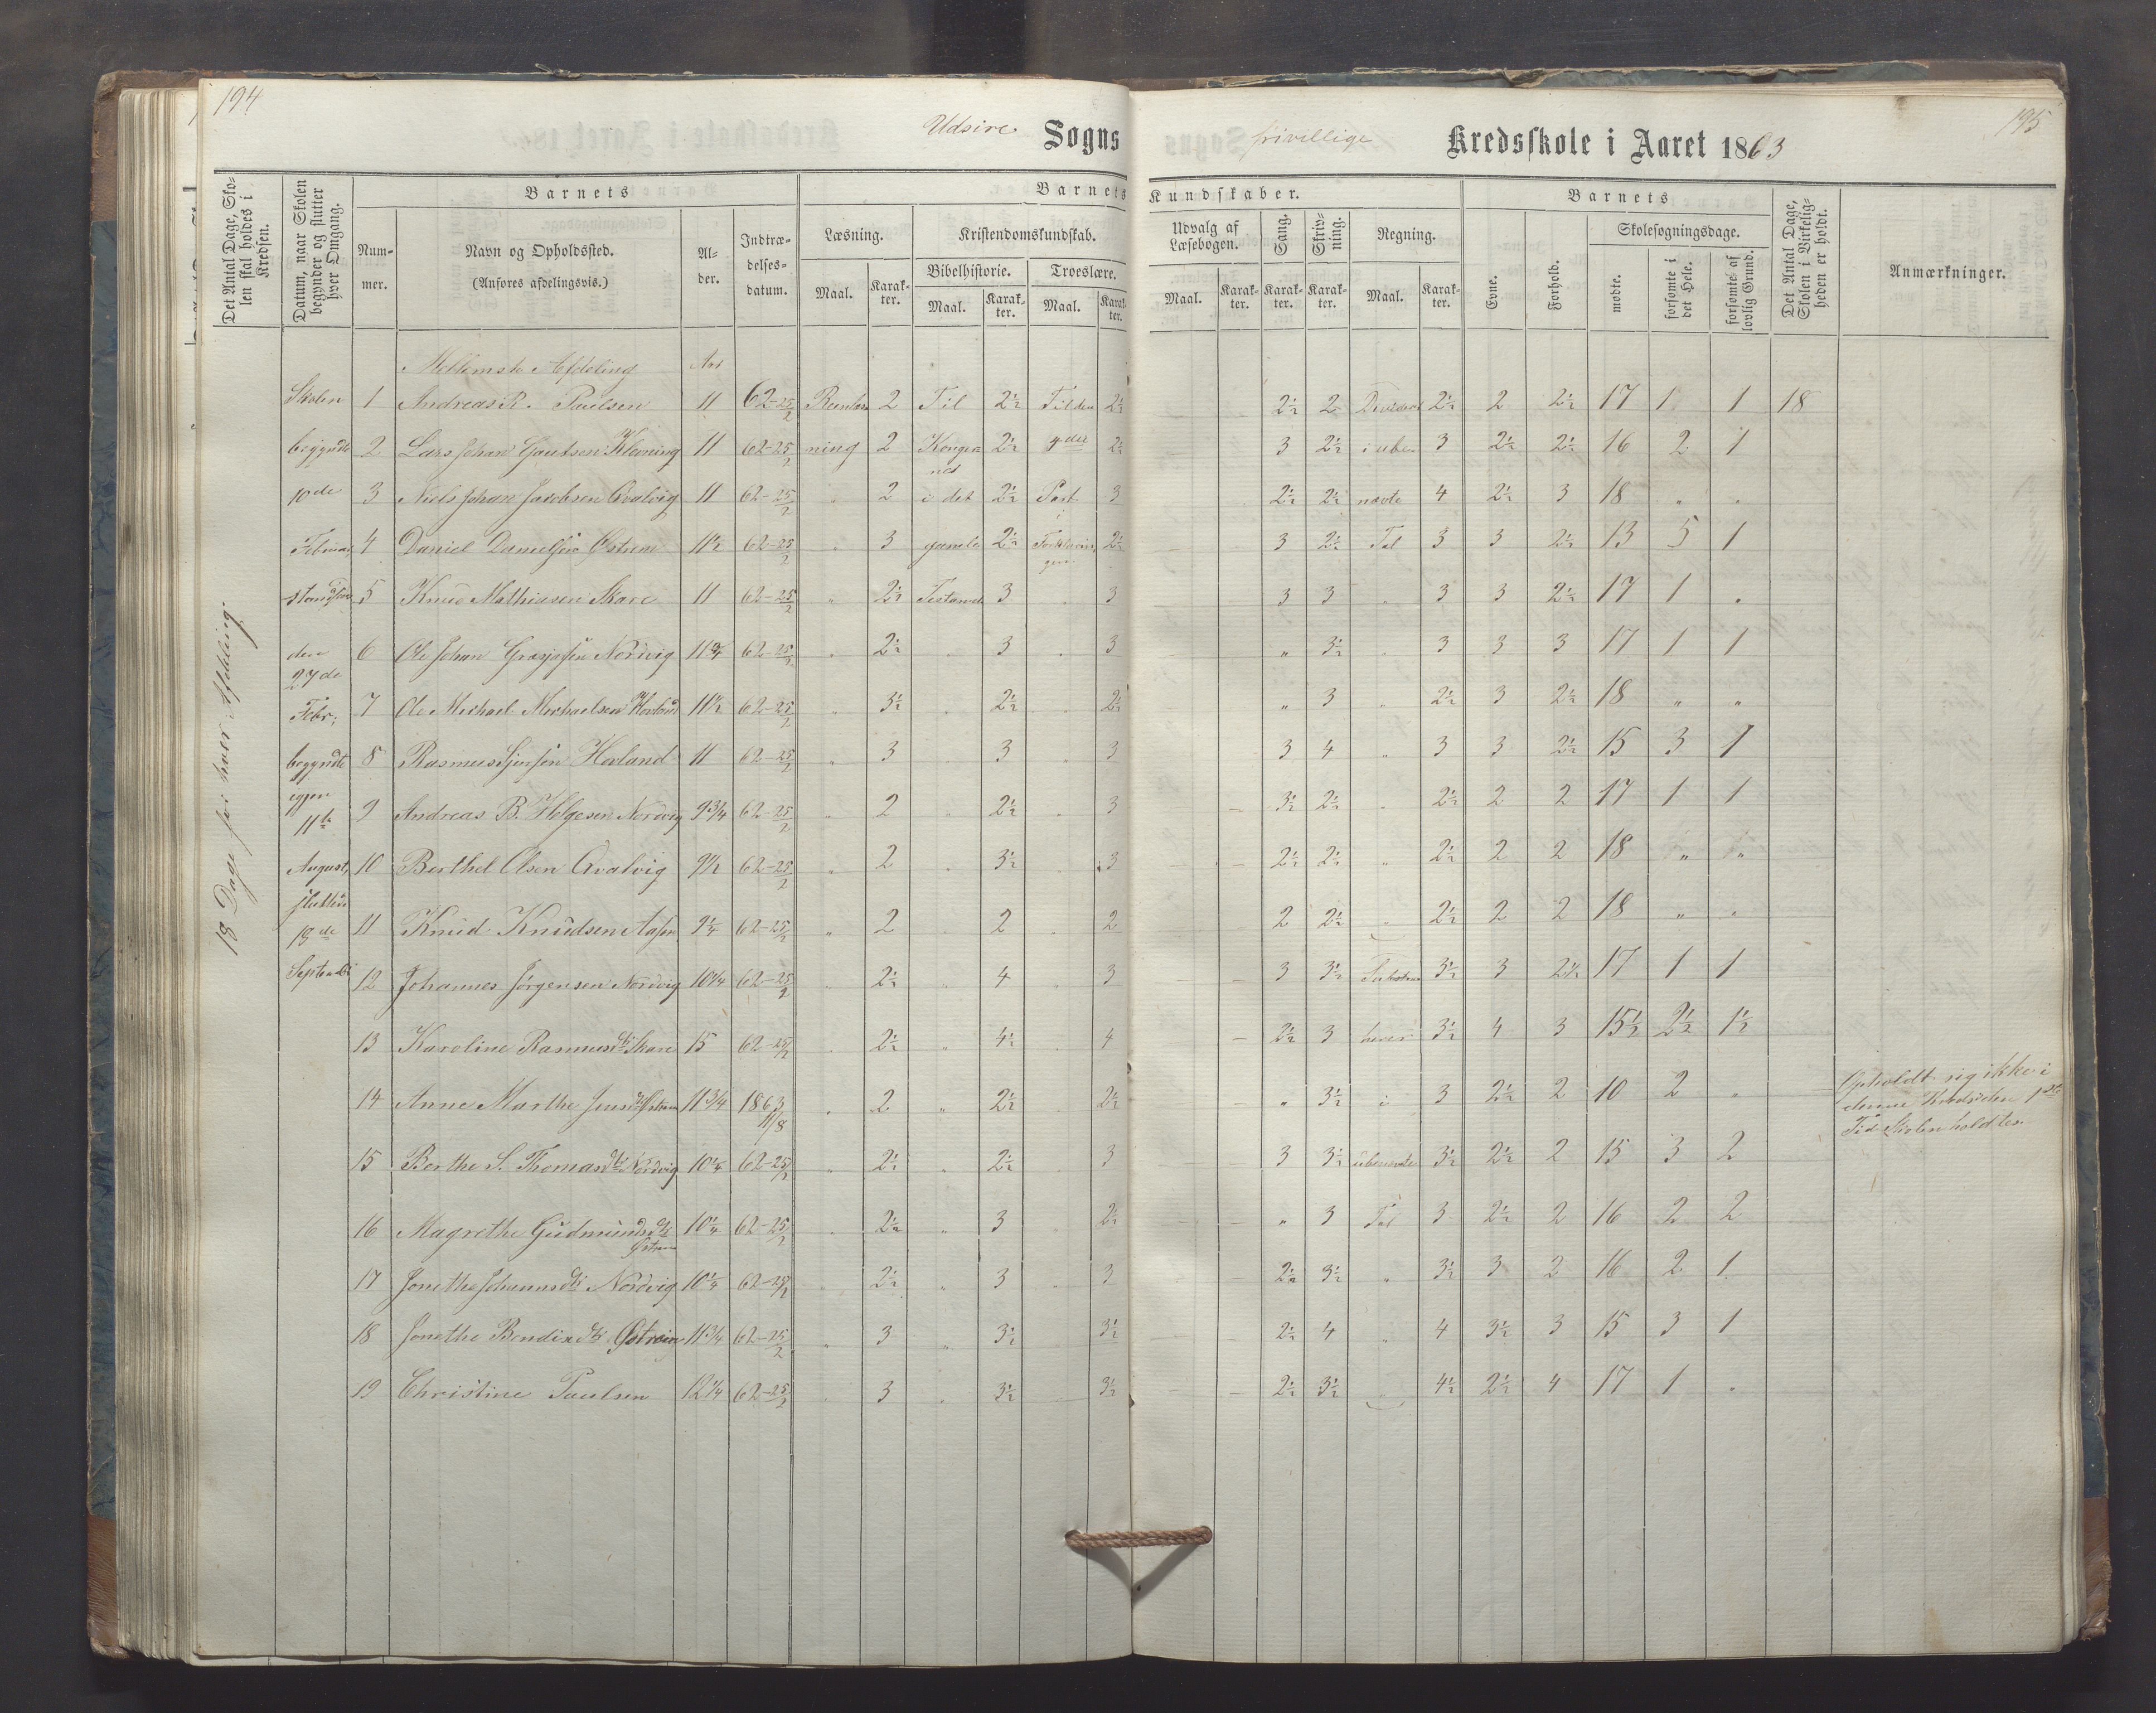 194
Udsire Sogns
frivillige Kredsskole i Aaret 1863
195
Det Antal Dage, Skolen skal holdes i Kredsen.
Datum, naar Skolen begynder og slutter hver Omgang.
Barnets
Nummer.
Navn og Opholdssted.
(Anføres afdelingsvis.)
Alder.
Indtrædelsesdatum.
Barnets
Læsning.
Maal.
Karakter.
Kristendomskundskab.
Bibelhistorie.
Maal.
Karakter.
Troeslære.
Maal.
Karakter.
Kundskaber.
Udvalg af Læsebogen.
Maal.
Karakter.
Sang.
Karakter.
Skrivning.
Karakter.
Regning.
Maal.
Karakter.
Barnets
Evne.
Forhold.
Skolesøgningsdage.
mødte.
forsømte i det Hele.
forsømte af lovlig Grund.
Det Antal Dage, Skolen i Virkeligheden er holdt.
Anmærkninger.
18 Dage for hver Afdeling.
Mellemste Afdeling Aar
Skolen 1 Andreas R. Paulsen 11 62-25/2 2 Til 2½ Til den 2½ 2½ 2 2½ 2 2½ 17 1 1 18
begyndte 2 Lars Johan Gautsen Klovning 11 62-25/2 ning 2 Konger- nes 2½ 4de 2½ 3 2½ i ube- 3 2½ 2½ 16 2 1
10de 3 Niels Johan Jacobsen Qvalvig 11 62-25/2 " 2 i det 2½ Part 3 2½ 2½ nævte 4 2½ 3 18 " "
Februar 4 Daniel Danielsen Østrem 11½ 62-25/2 " 3 gamle 2½ 2½ 3 2½ Tal 3 3 2½ 13 5 1
5 Knud Mathiasen Skare 11 62-25/2 " 2½ Testament 3 " 3 3 3 " 3 3 2½ 17 1 "
den 6 Ole Johan Nordvig 11¾ 62-25/2 " 2½ " 3 " 3 " 3½ " 3 3 3 17 1 1
27de
Febr; 7 Ole Michael Michaelsen Hovland 11½ 62-25/2 " 3½ " 2½ " 2½ " 3 " 2½ 3 2½ 18 " "
begyndte 8 Rasmus Hovland 11 62-25/2 " 3 " 3 " 3 3 4 " 3 3 2½ 15 3 1
igjen
11te 9 Andreas B. Helgesen Nordvig 9¾ 62-25/2 " 2 " 2½ " 3 3½ 2½ " 2½ 2 2 17 1 1
August, 10 Berthel Olsen Qvalvig 9½ 62-25/2 " 2 " 3½ " 3 2½ 2½ " 2½ 2 2 18 " "
sluttede
11 Knud Knudsen 9¼ 62-25/2 " 2 " 2 " 2 2 2½ " 2½ 2 2 18 " "
September 12 Johannes Jørgensen Nordvig 10¼ 62-25/2 " 2½ " 4 " 3 3 3½ 3½ 3 2½ 17 1 1
13 Karoline Rasmusdtr Skare 15 62-25/2 " 2½ " 4½ " 4 2½ 3 3½ 4 3 15½ 2½ 1½
14 Anne Marthe Jensdtr Østrem 11¾ 1863 11/8 " 2 " 2½ " 2½ " 3½ i 3 2½ 2 10 2 " Opholdt sig ikke i
denne Kreds den 1ste
Tid Skolen holdtes.
15 Berthe S. Thomasdtr Nordvig 10¼ 62-25/2 " 2½ " 2½ " 3 3 3½ ubenævte 3½ 2½ 2 15 3 2
16 Magrethe Gudmundsdtr Østrem 10¼ 62-25/2 " 2½ " 3 " 2½ " 3 Tal 3 2½ 2 16 2 2
17 Jonethe Johannsdtr Nordvig 10¼ 62-25/2 " 2½ " 3 " 3 2½ 3½ " 3½ 3 2 16 2 1
18 Jonethe Bendixdtr Østrem 11¾ 62-25/2 " 3 " 3½ 3½ 2½ 4 " 4 3½ 3 15 3 1
19 Christine Paulsen 12¼ 62-25/2 " 3 " 3½ 3½ 2½ 3½ " 4½ 2½ 4 17 1 "